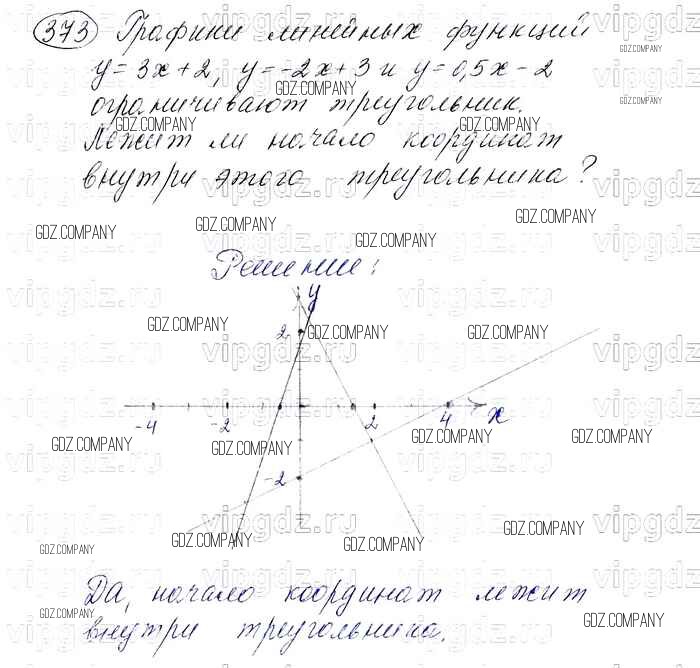 373 Графики линейных функций
y = 3x + 2, y = -2x + 3 и y = 0,5x - 2
ограничивают треугольник.
Лежит ли начало координат
внутри этого треугольника?
Решение:
y
2
-4 -2 2 4 x
-2
Да, начало координат лежит
внутри треугольника.
vipgdz.ru
GDZ.COMPANY